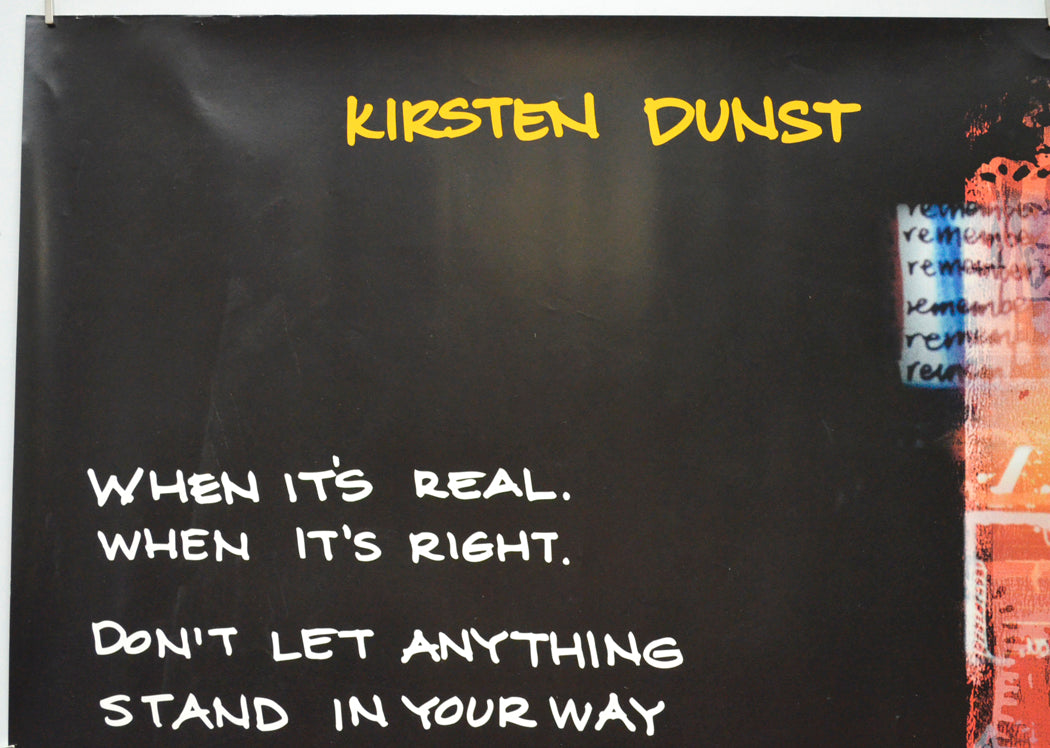 KIRSTEN DUNST
remember
remember
remember
remember
remember
WHEN IT'S REAL.
WHEN IT'S RIGHT.
DON'T LET ANYTHING
STAND IN YOUR WAY